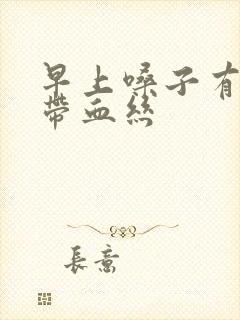 早上嗓子有
帶血絲
長意